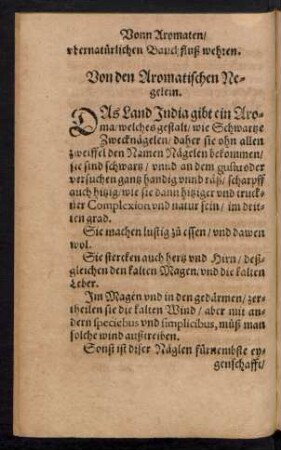 Vonn Aromaten/
vbernatürlichen Bauchfluß wehren.
Von den Aromatischen Ne-
gelein.
DAs Land India gibt ein Aro-
ma/welches gestalt/wie Schwartze
Zwecknägelen/daher sie ohn allen
zweiffel den Namen Nägelen bekommen/
sie sind schwartz/vnnd an dem gustu oder
versuchen gantz handig vnnd räß/scharpff
auch hitzig/wie sie dann hitziger vnd truck-
ner Complexion vnd natur sein/im drit-
ten grad.
Sie machen lustig zu essen/vnd dawen
wol.
Sie stercken auch hertz vnd Hirn/deß-
gleichen den kalten Magen/vnd die kalten
Leber.
Im Magen vnd in den gedärmen/zer-
theilen sie die kalten Wind/aber mit an-
dern speciebus vnd simplicibus, müß man
solche wind außtreiben.
Sonst ist diser Näglen fürnembste ey-
genschafft/